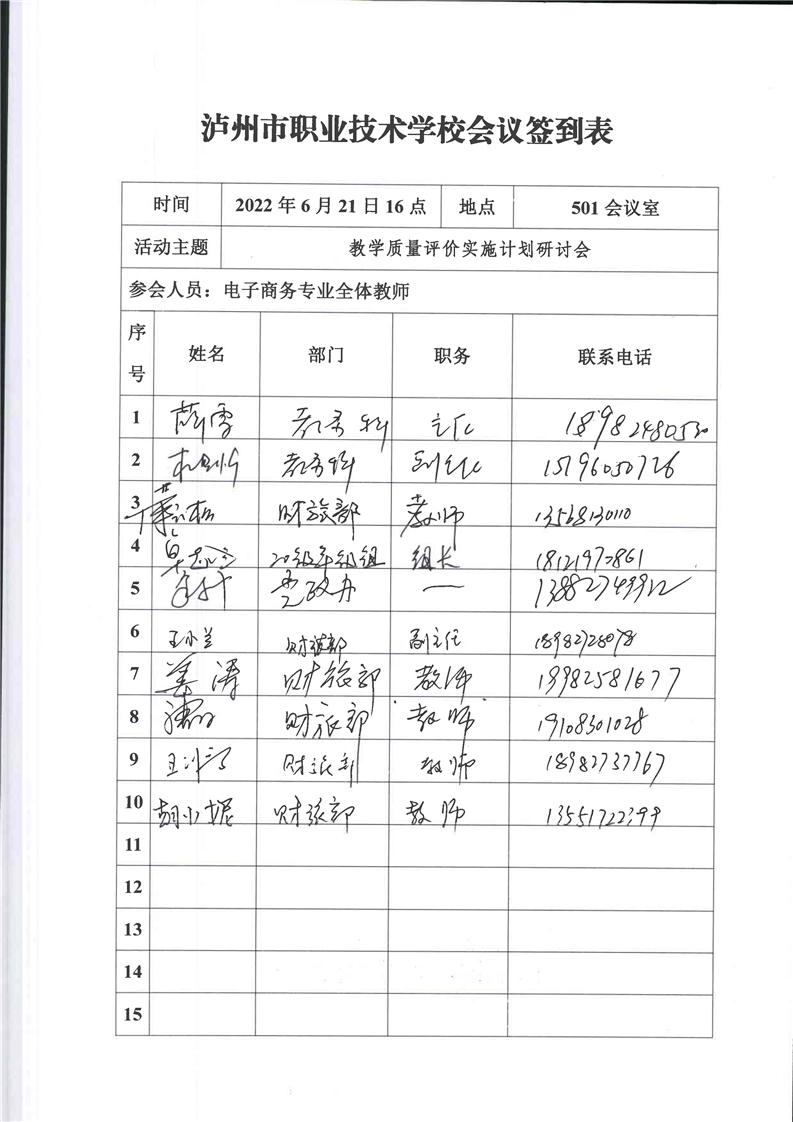 泸州市职业技术学校会议签到表
时间 2022 年 6 月 21 日 16 点 地点 501 会议室
活动主题 教学质量评价实施计划研讨会
参会人员：电子商务专业全体教师
序号 姓名 部门 职务 联系电话
1 教务科 主任 18982480530
2 教务科 副主任 15196050726
3 财旅部 教师 13568130110
4 20级年级组 组长
5 党政办 一
6 王小兰 财旅部 副主任 18982728078
7 姜涛 财旅部 教师 13982581677
8 财旅部 教师 19108301028
9 财旅部 教师 18982737767
10 胡小妮 财旅部 教师 13551722399
11
12
13
14
15